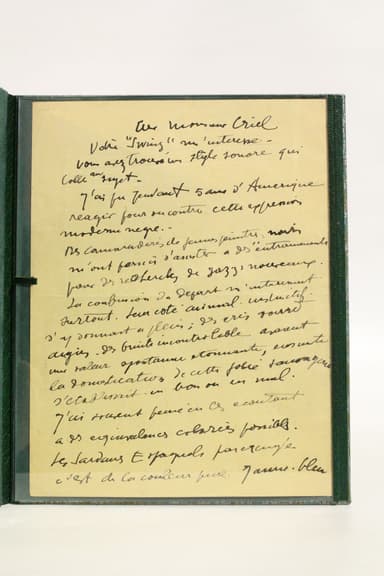 Cher Monsieur Criel
Votre "Swing" m'interesse -
Vous avez trouvé un style sonore qui
colle au sujet -
J'ai pu pendant 5 ans d'Amerique
reagir pour ou contre cette expression
moderne negre. -
Des camarades de jeunes peintres noirs
m'ont permis d'assister a des "entrainements"
pour des recherches de jazz nouveaux.
La confusion du depart m'interessait
surtout. Son côté animal instinctif.
s'y donnant a plein ; des cris sourds
aigus. des bruits incontrolable avaient
une valeur spontanée etonnante, ensuite
la domestication de cette folie sauvage
s'etablissait en bon ou en mal.
J'ai souvent pensé en les ecoutant
a des equivalences colorées possibles.
Les Sardanes Espagnoles par exemple
c'est de la couleur pure. Jaune-bleu